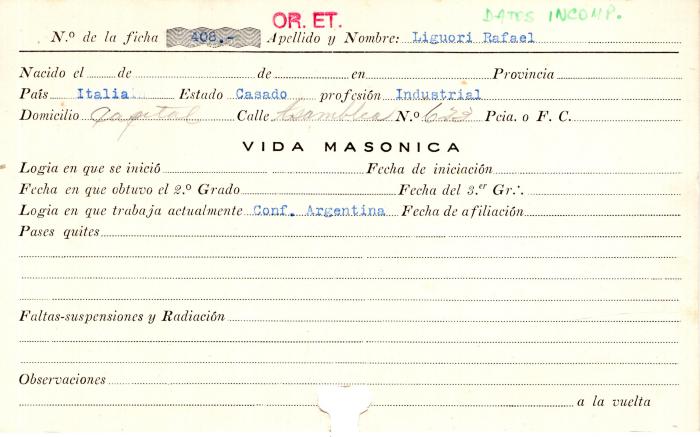 OR. ET. DATES INCOMP.
N.º de la ficha 408.- Apellido y Nombre: Liguori Rafael
Nacido el de de en Provincia
País Italia Estado Casado profesión Industrial
Domicilio Capital Calle Asamblea N.º 633 Pcia. o F. C.
VIDA MASONICA
Logia en que se inició Fecha de iniciación
Fecha en que obtuvo el 2.º Grado Fecha del 3.er Gr∴
Logia en que trabaja actualmente Conf. Argentina Fecha de afiliación
Pases quites
Faltas-suspensiones y Radiación
Observaciones
a la vuelta